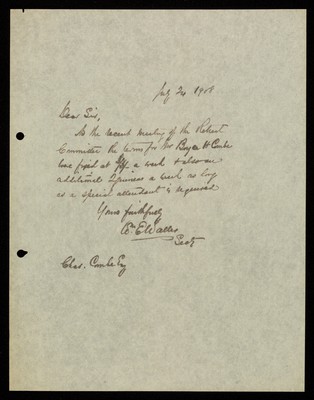 July 24 1901
Dear Sir,
At the recent meeting of the Retreat
Committee the terms for Mr Boyce H. Combe
were fixed at a week & also an
additional 2 guineas a week as long
as a special attendant is required
Yours faithfully
E Waller
Secty
Chas. Combe Esq